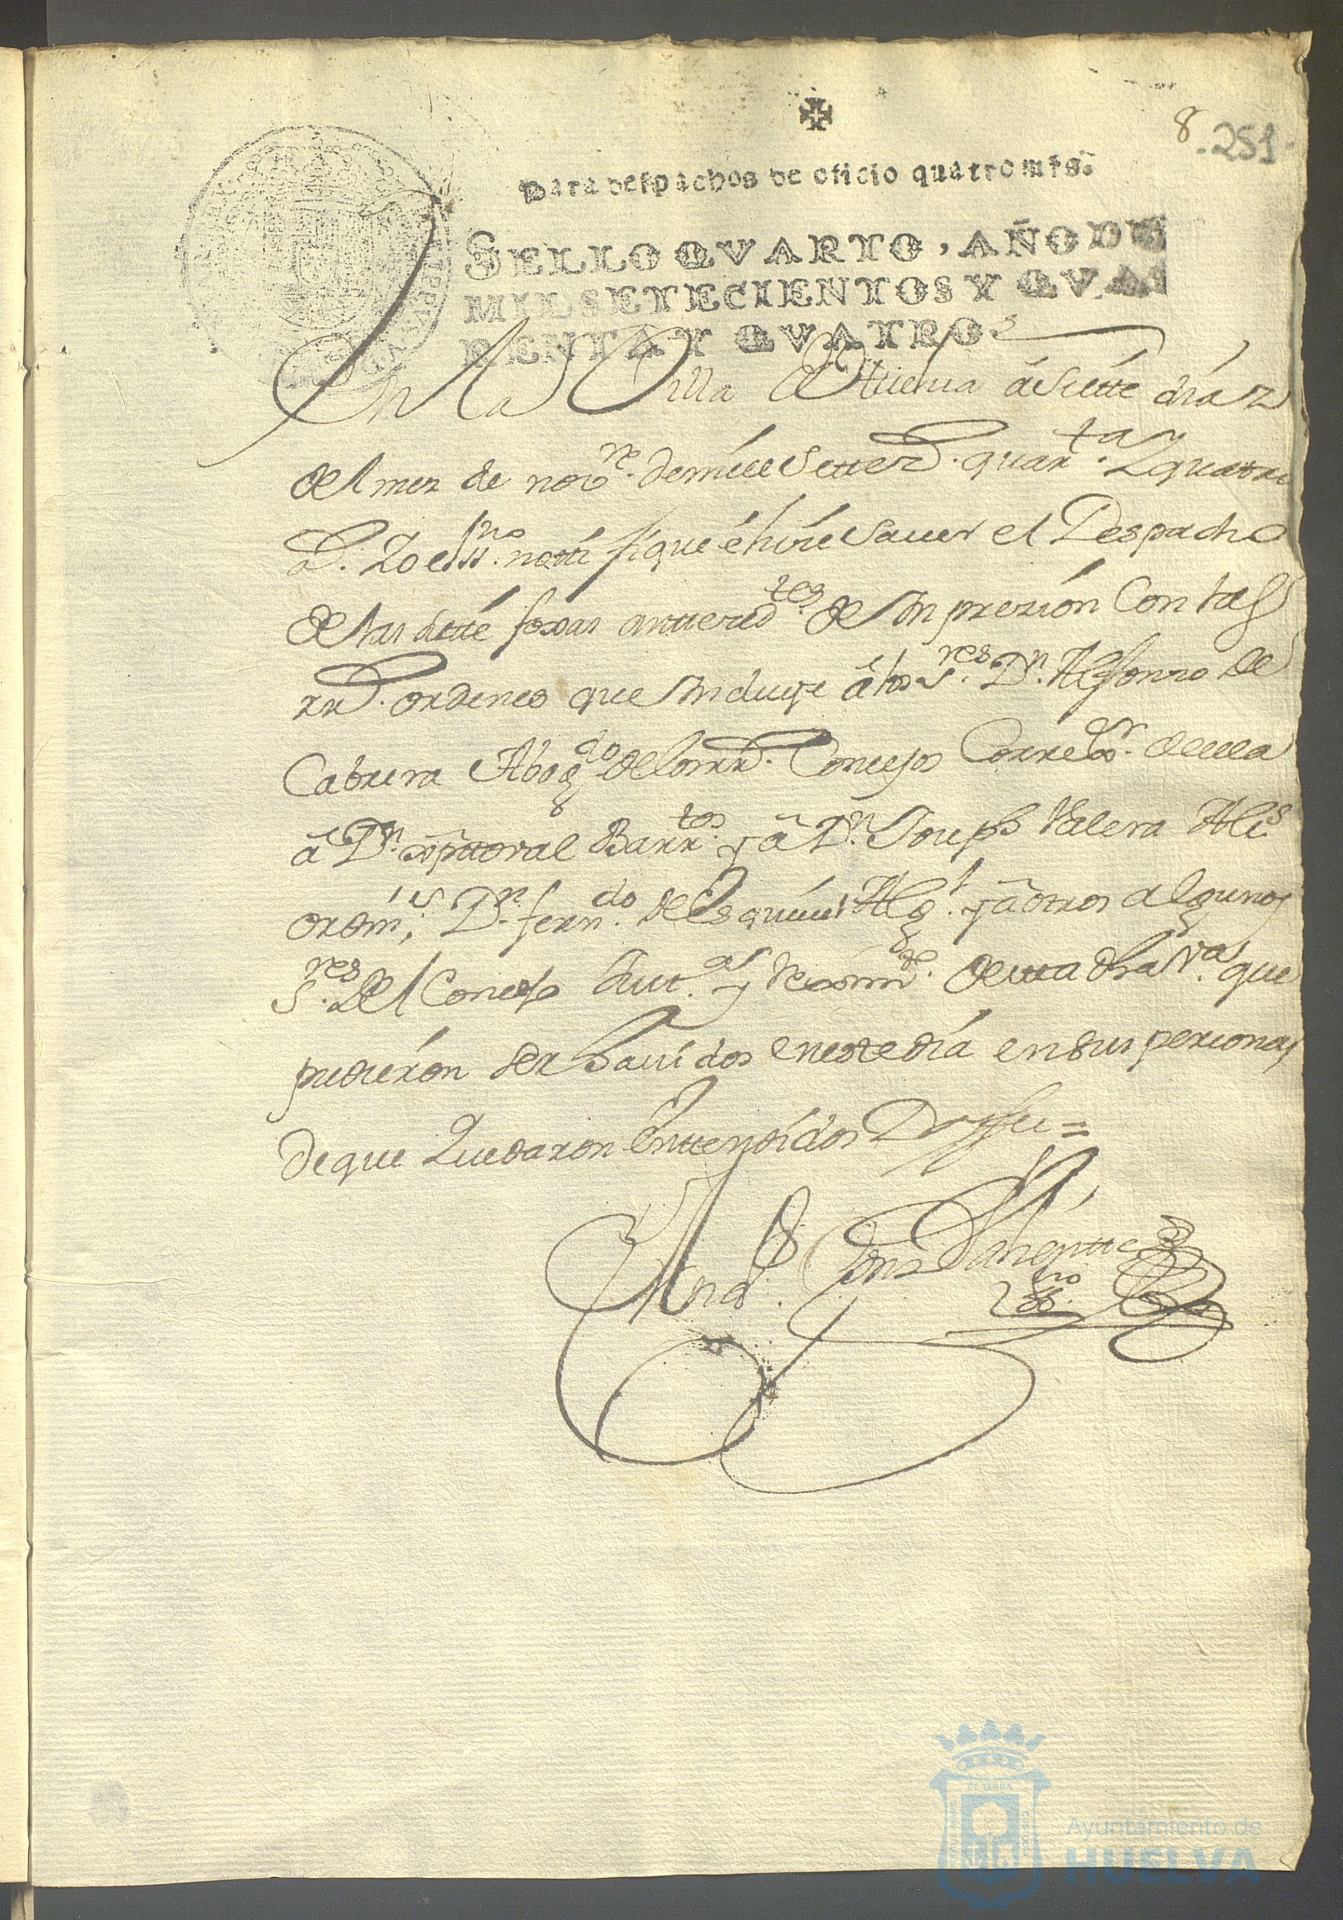 8
251
Para despachos de oficio quatro mrs.
SELLO QVARTO, AÑO DE
MIL SETECIENTOS Y QVA
RENTA Y QVATRO.
En la Villa de Huelva á Siette días
del mes de nov.re de mill Settez.s quar.ta y quatro
Yo el ss.no notifiqué é hice saver el Despacho
de las siete foxas antteced.tes de Impreción Con las
rr.s ordenes que Incluye á los S.res D.n Alfonso de
Cabrera Abog.do de los rr.s Concejos Correg.or de ella
á D.n xptoval Barr.tos y á D.n Joseph Valera Alc.s
ordin.s, D.n fern.do de Esquivel Alg.l y á otros algunos
S.res del Concejo Just.a y reximi.to de esta dha v.a que
pudieron ser havidos en este día en sus personas
de que Quedaron Enttendidos Doy ffee =
Valientte
ss.no
Ayuntamiento de
HUELVA